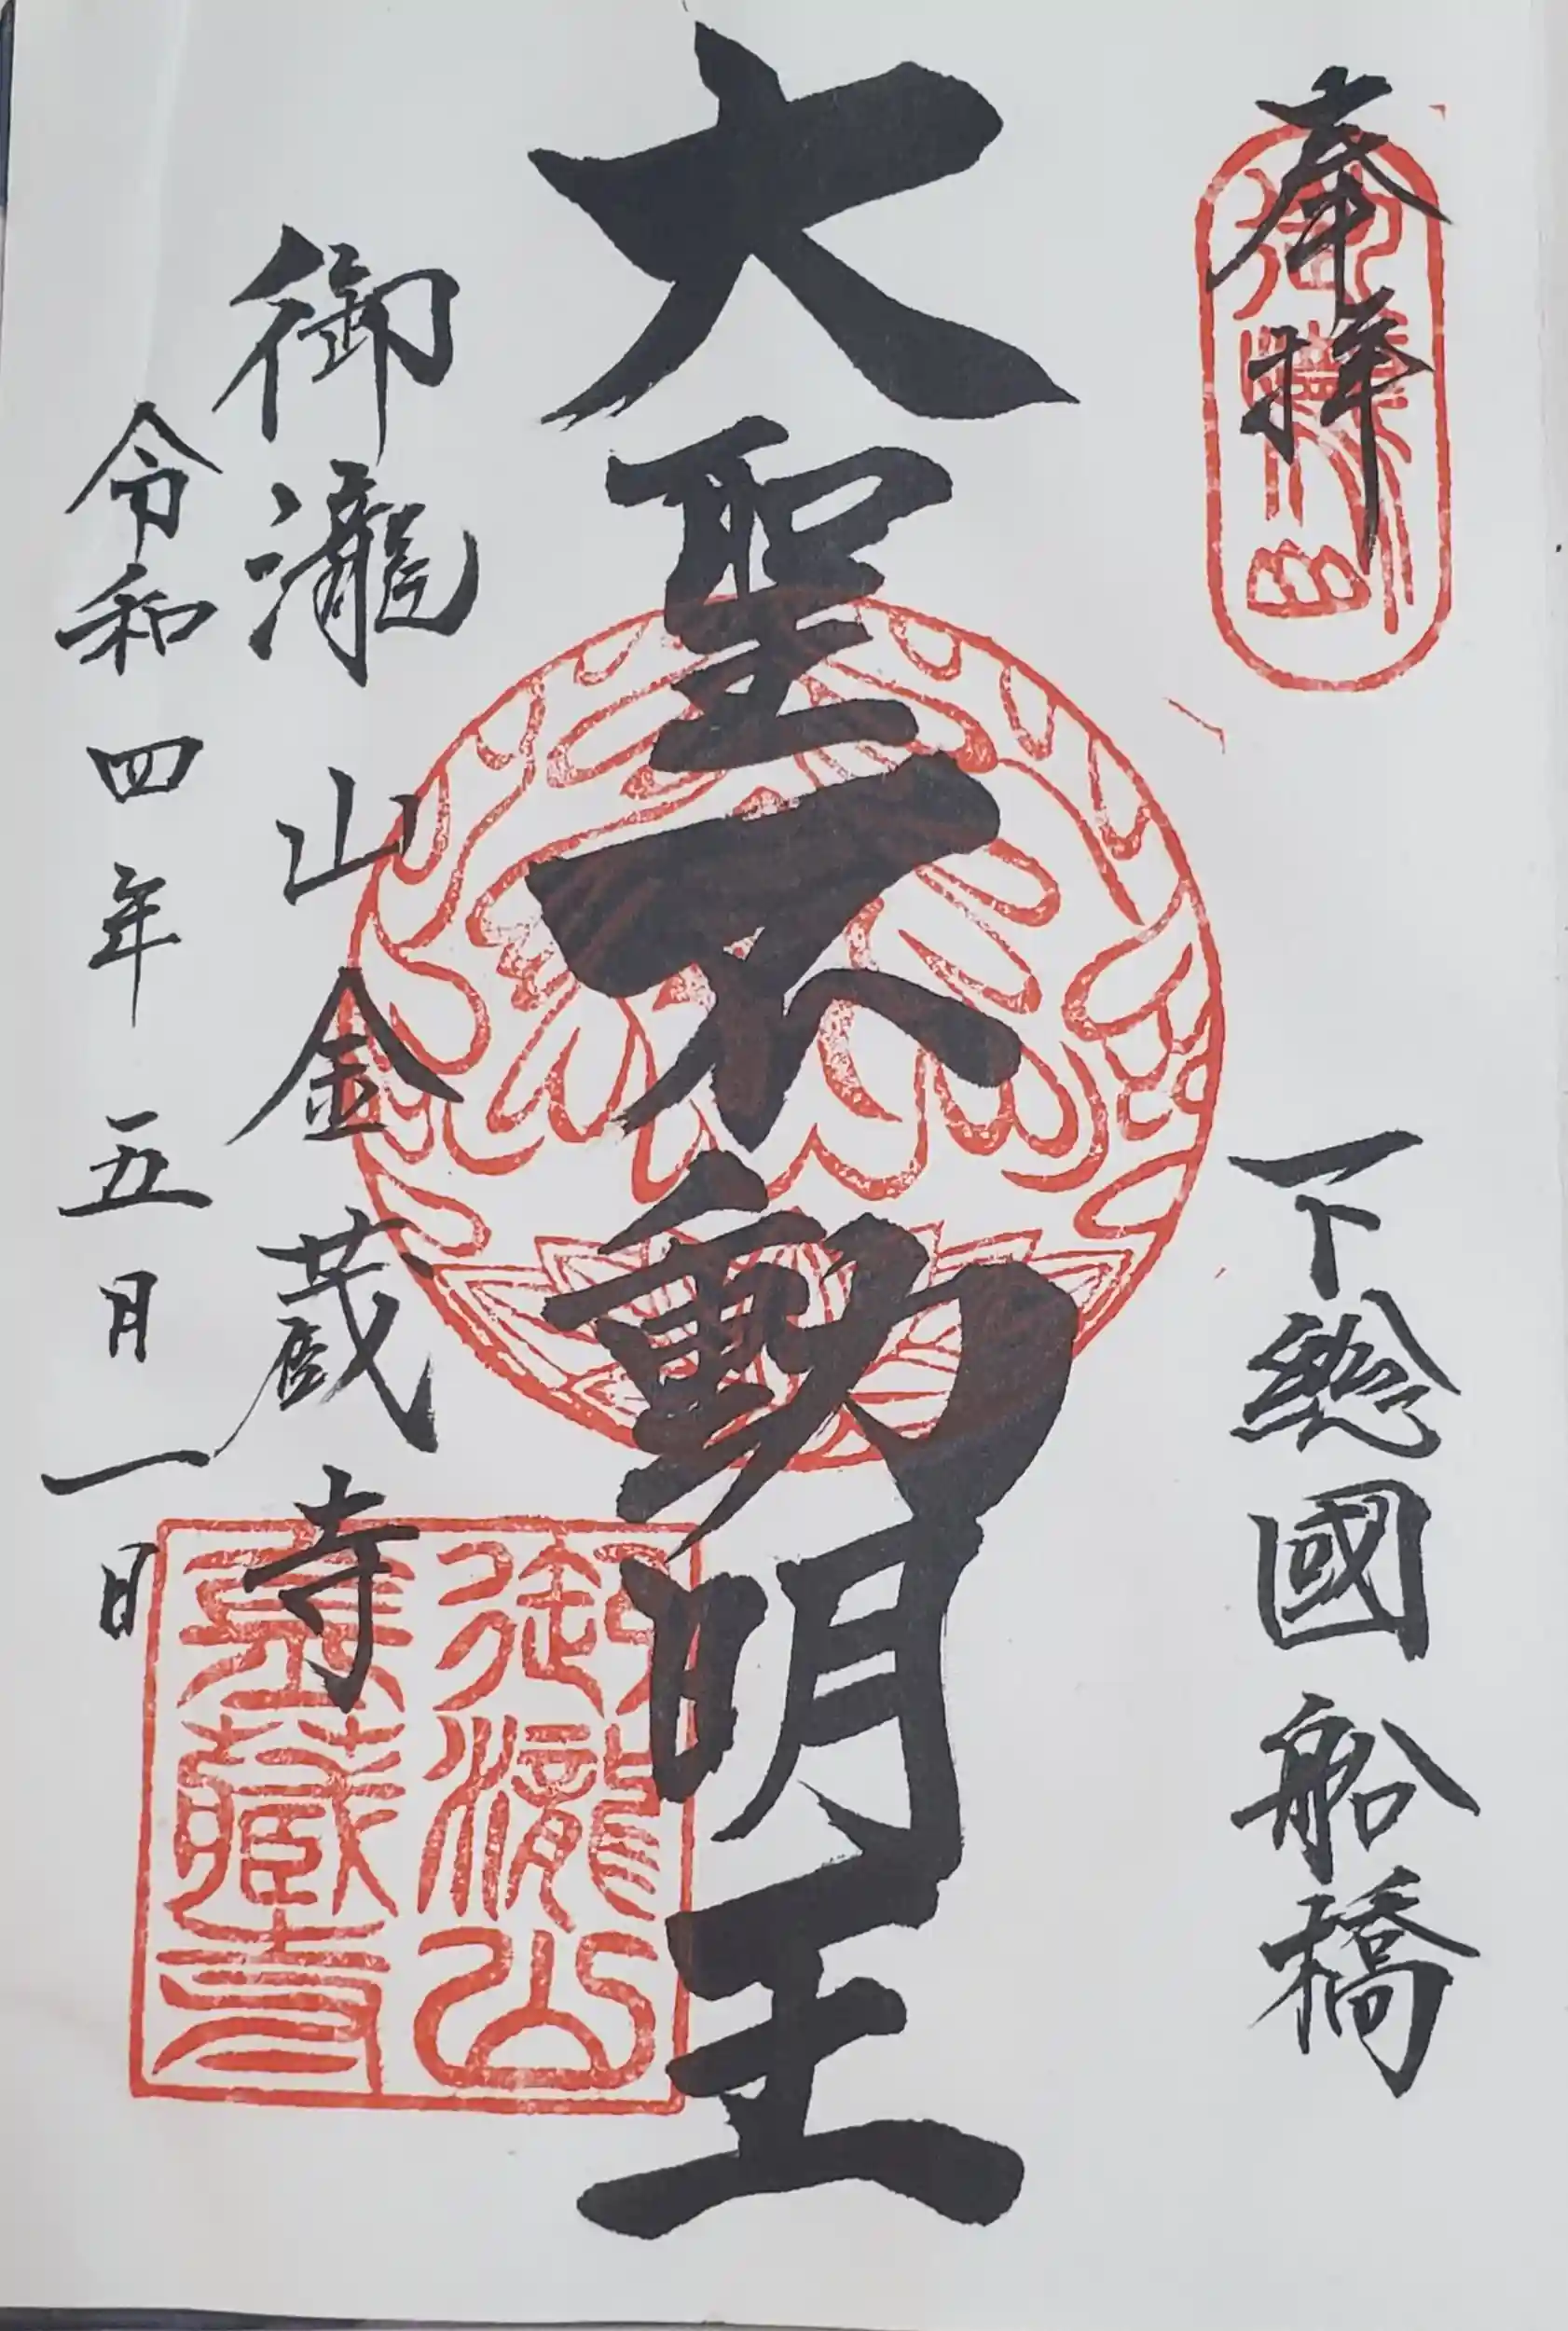 奉拝
下總國 船橋
大聖不動明王
御瀧山金蔵寺
令和四年五月一日
御瀧山
金藏寺